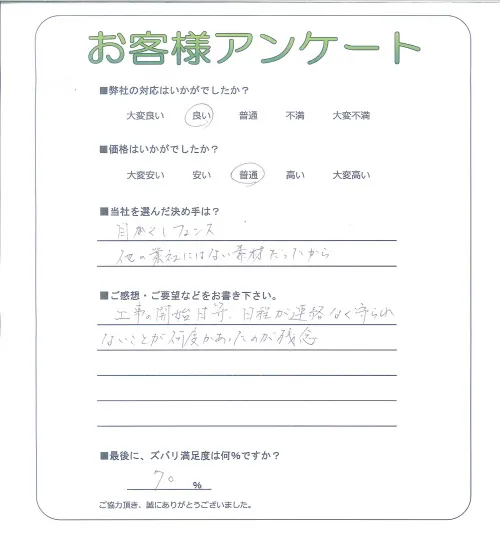 お客様アンケート
■弊社の対応はいかがでしたか？
大変良い 良い 普通 不満 大変不満
■価格はいかがでしたか？
大変安い 安い 普通 高い 大変高い
■当社を選んだ決め手は？
目かくしフェンス
他の業社にはない素材だったから
■ご感想・ご要望などをお書き下さい。
工事の開始日等、日程が連絡なく守られ
ないことが何度かあったのが残念
■最後に、ズバリ満足度は何％ですか？
70 ％
ご協力頂き、誠にありがとうございました。